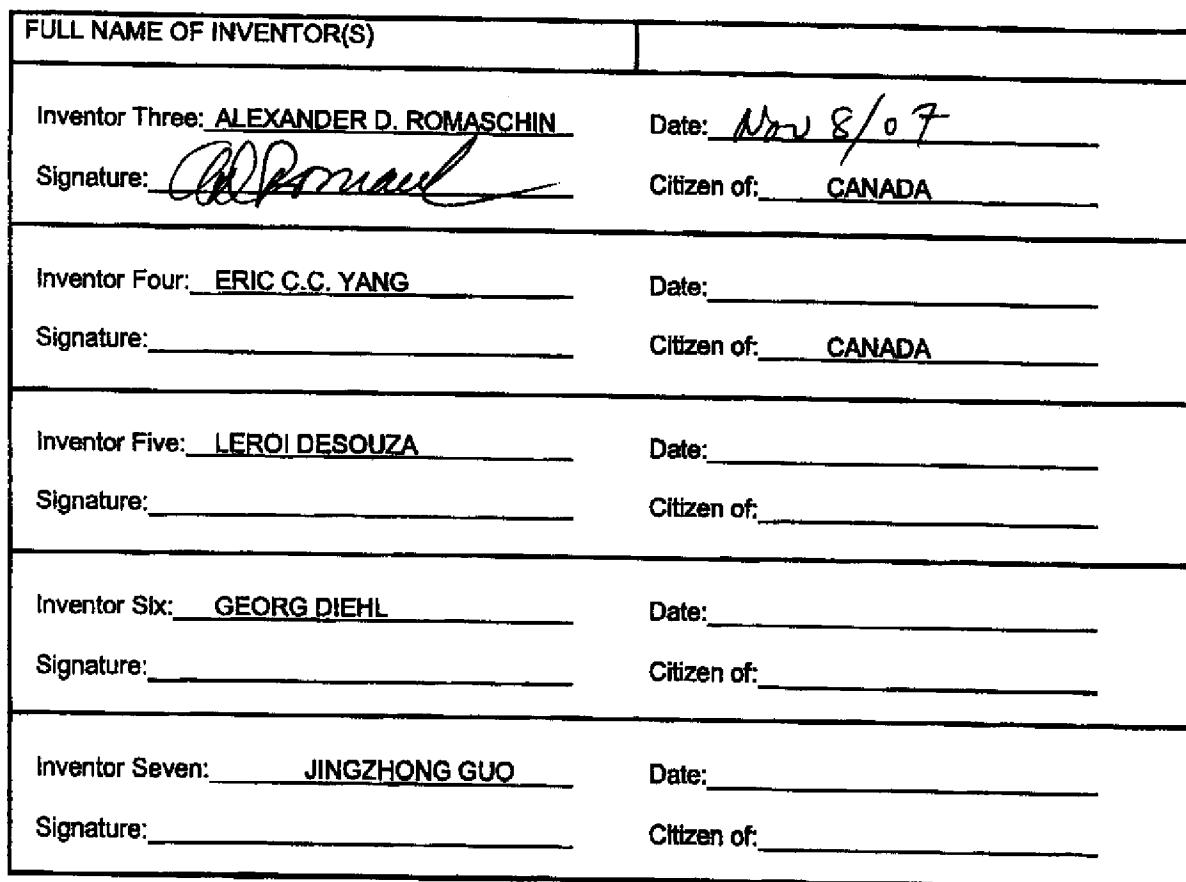 FULL NAME OF INVENTOR(S)
Inventor Three: ALEXANDER D. ROMASCHIN Date: Nov 8/07
Signature: Citizen of: CANADA
Inventor Four: ERIC C.C. YANG Date:
Signature: Citizen of: CANADA
Inventor Five: LEROI DESOUZA Date:
Signature: Citizen of:
Inventor Six: GEORG DIEHL Date:
Signature: Citizen of:
Inventor Seven: JINGZHONG GUO Date:
Signature: Citizen of: